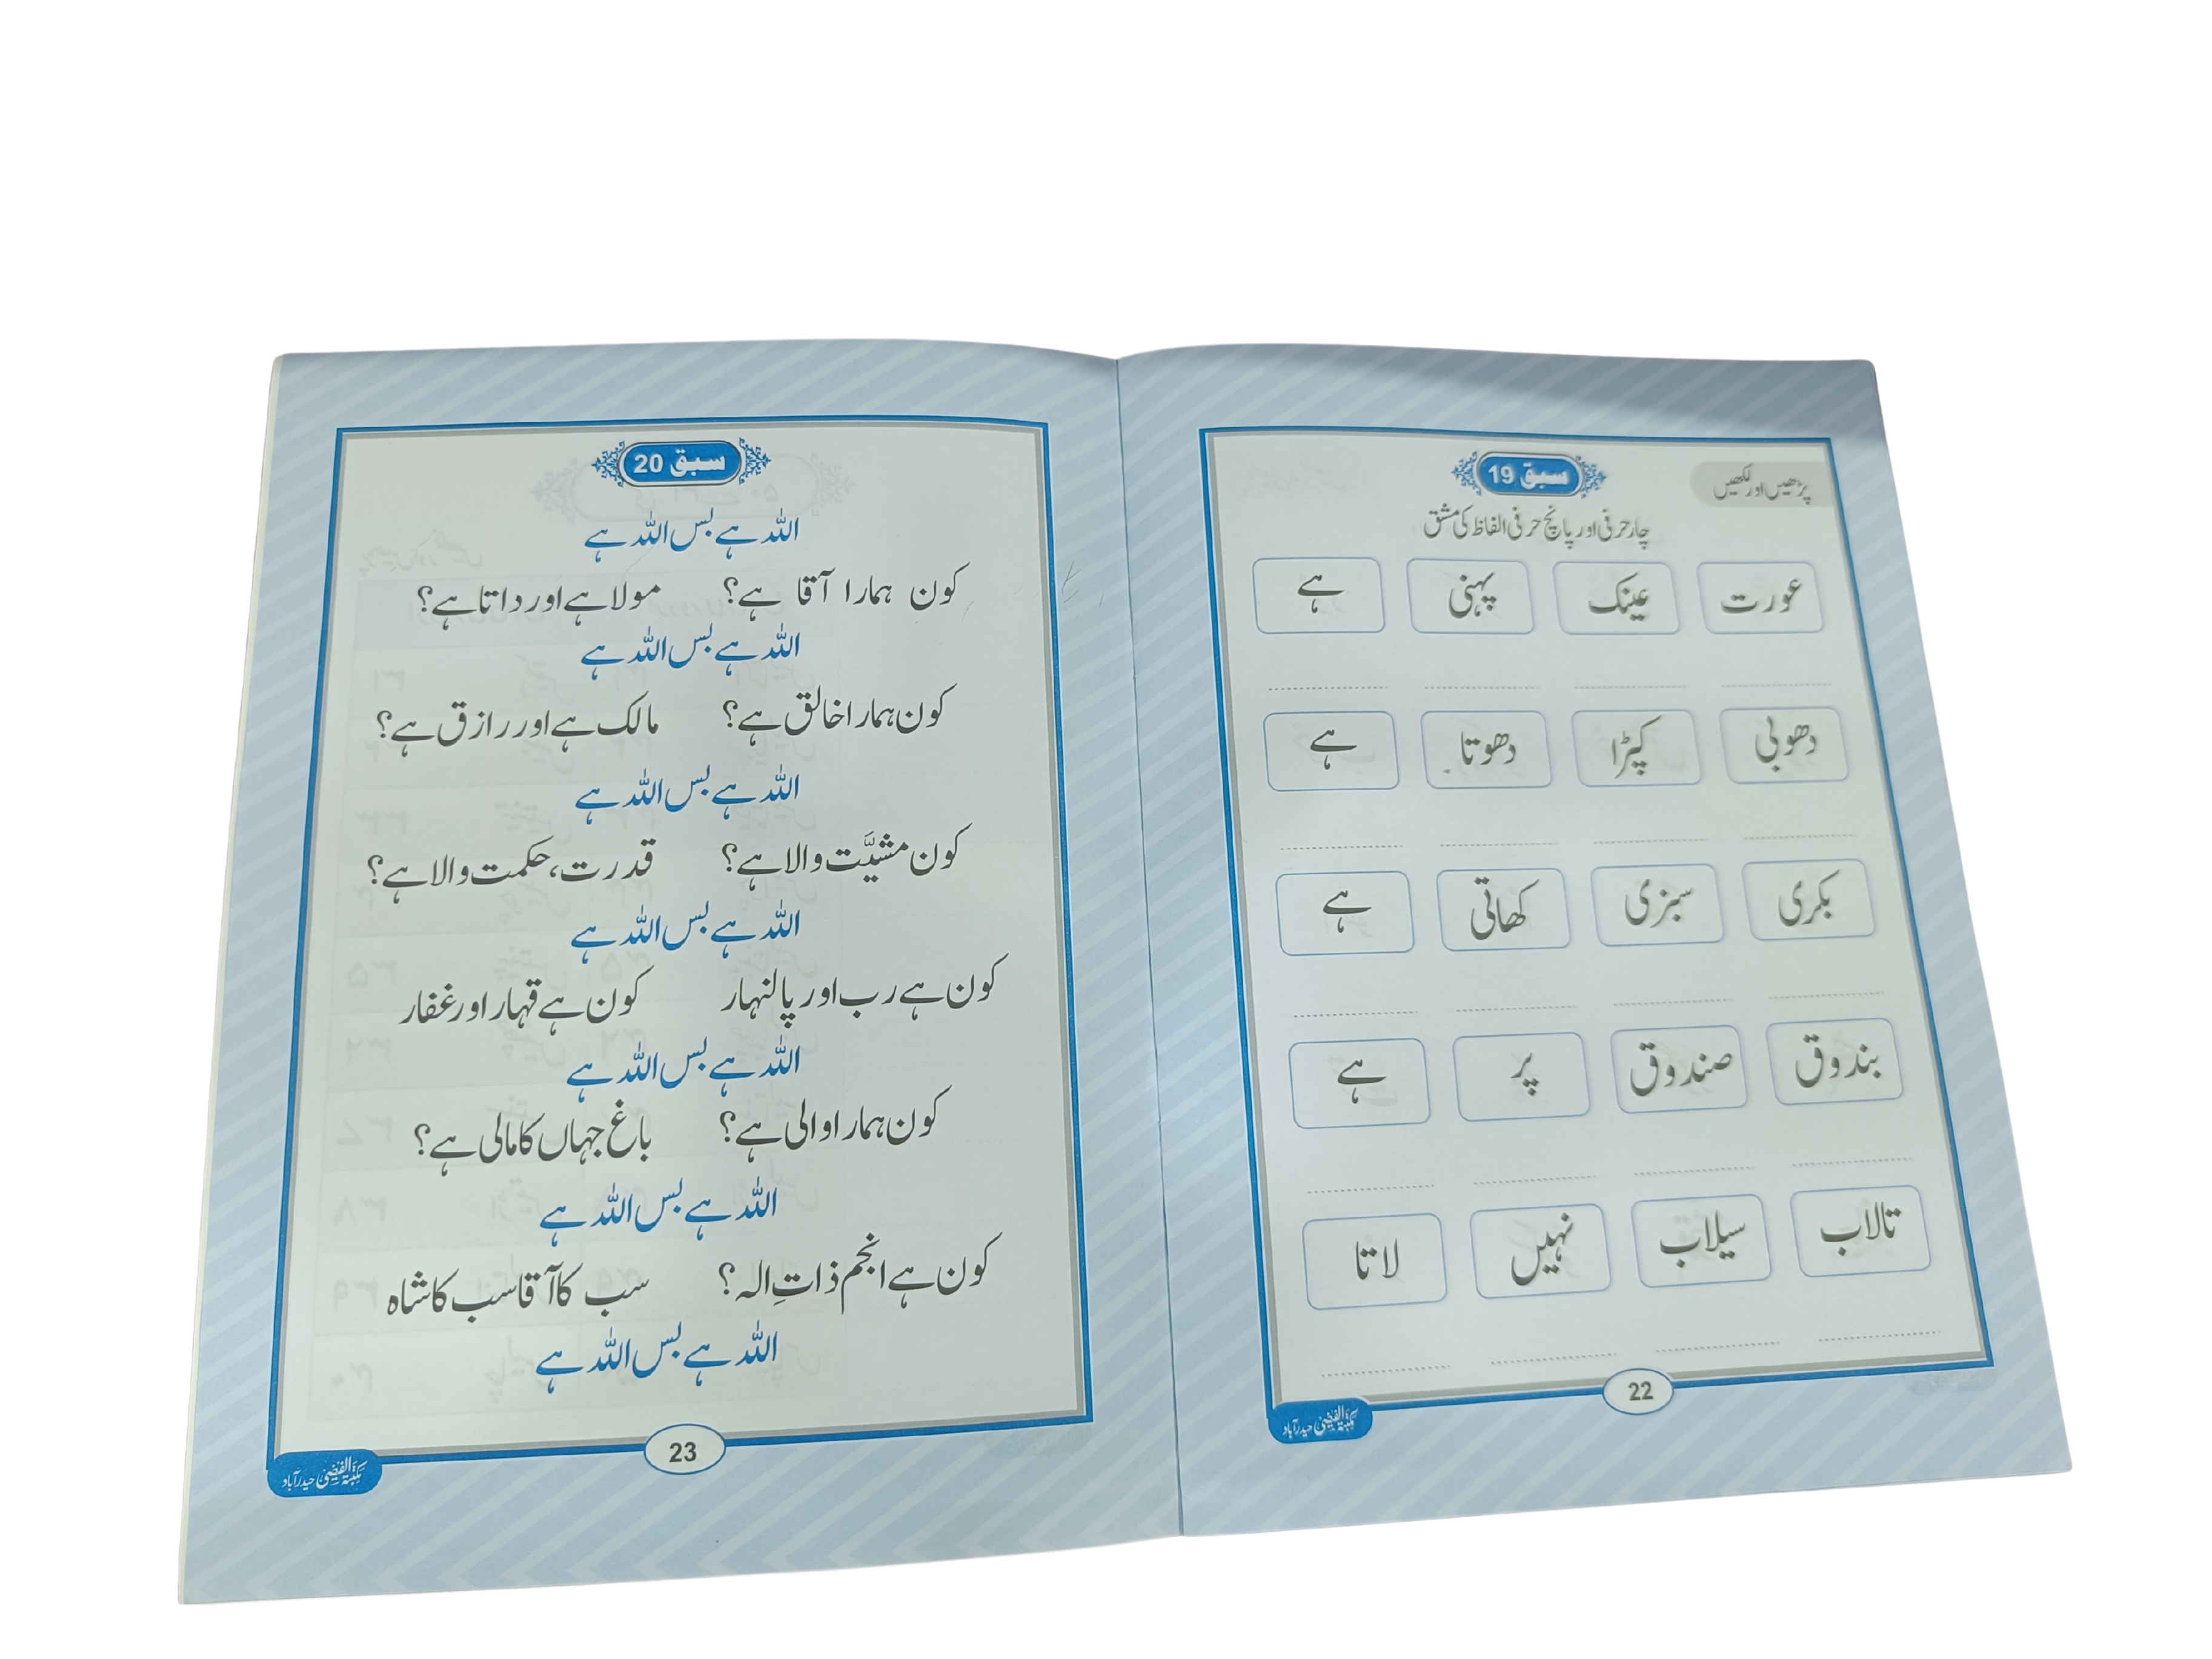 پڑھیں اور لکھیں
سبق 19
چار حرفی اور پانچ حرفی الفاظ کی مشق
عورت عینک پہنی ہے
دھوبی کپڑا دھوتا ہے
بکری سبزی کھاتی ہے
بندوق صندوق پر ہے
تالاب سیلاب نہیں لاتا
22
مکتبۃ الفیضی حیدرآباد
سبق 20
اللہ ہے بس اللہ ہے
کون ہمارا آقا ہے؟ مولا ہے اور داتا ہے؟
اللہ ہے بس اللہ ہے
کون ہمارا خالق ہے؟ مالک ہے اور رازق ہے؟
اللہ ہے بس اللہ ہے
کون مشیَّت والا ہے؟ قدرت، حکمت والا ہے؟
اللہ ہے بس اللہ ہے
کون ہے رب اور پالنہار کون ہے قہار اور غفار
اللہ ہے بس اللہ ہے
کون ہمارا والی ہے؟ باغ جہاں کا مالی ہے؟
اللہ ہے بس اللہ ہے
کون ہے انجم ذاتِ الہ؟ سب کا آقا سب کا شاہ
اللہ ہے بس اللہ ہے
23
مکتبۃ الفیضی حیدرآباد